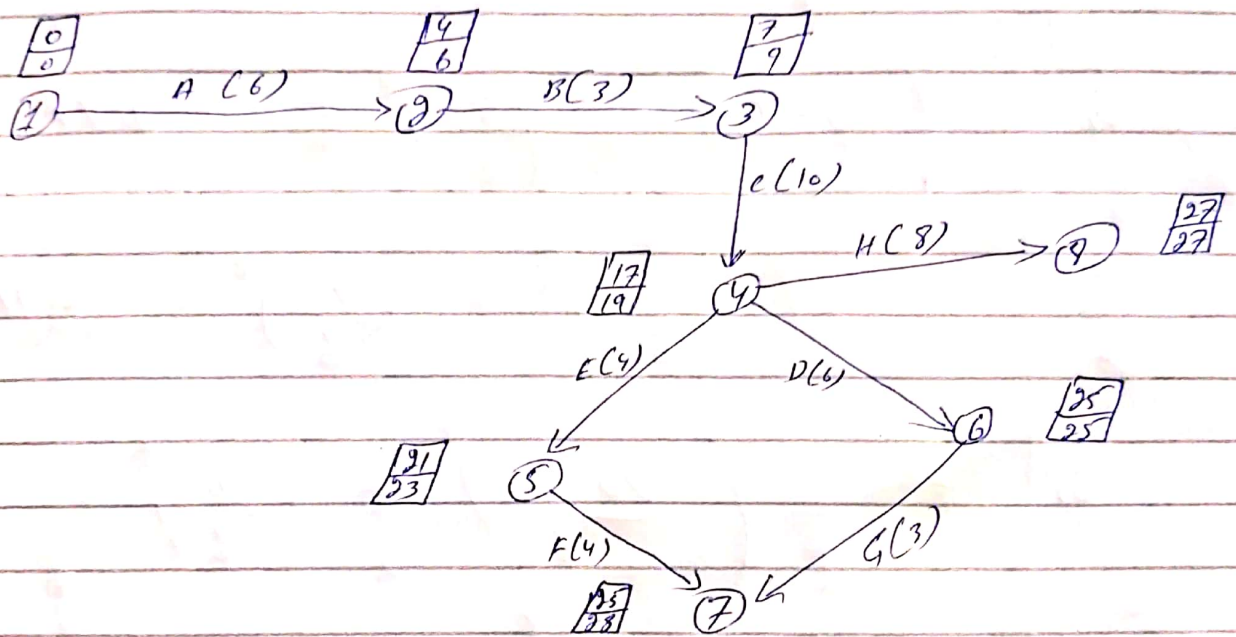 0 4 7
0 6 9
A (6) B(3)
1 2 3
C(10)
H(8) 27
27
17
19 4
E(4) D(6)
25
25
6
21
23 5
F(4) G(3)
25
28 7